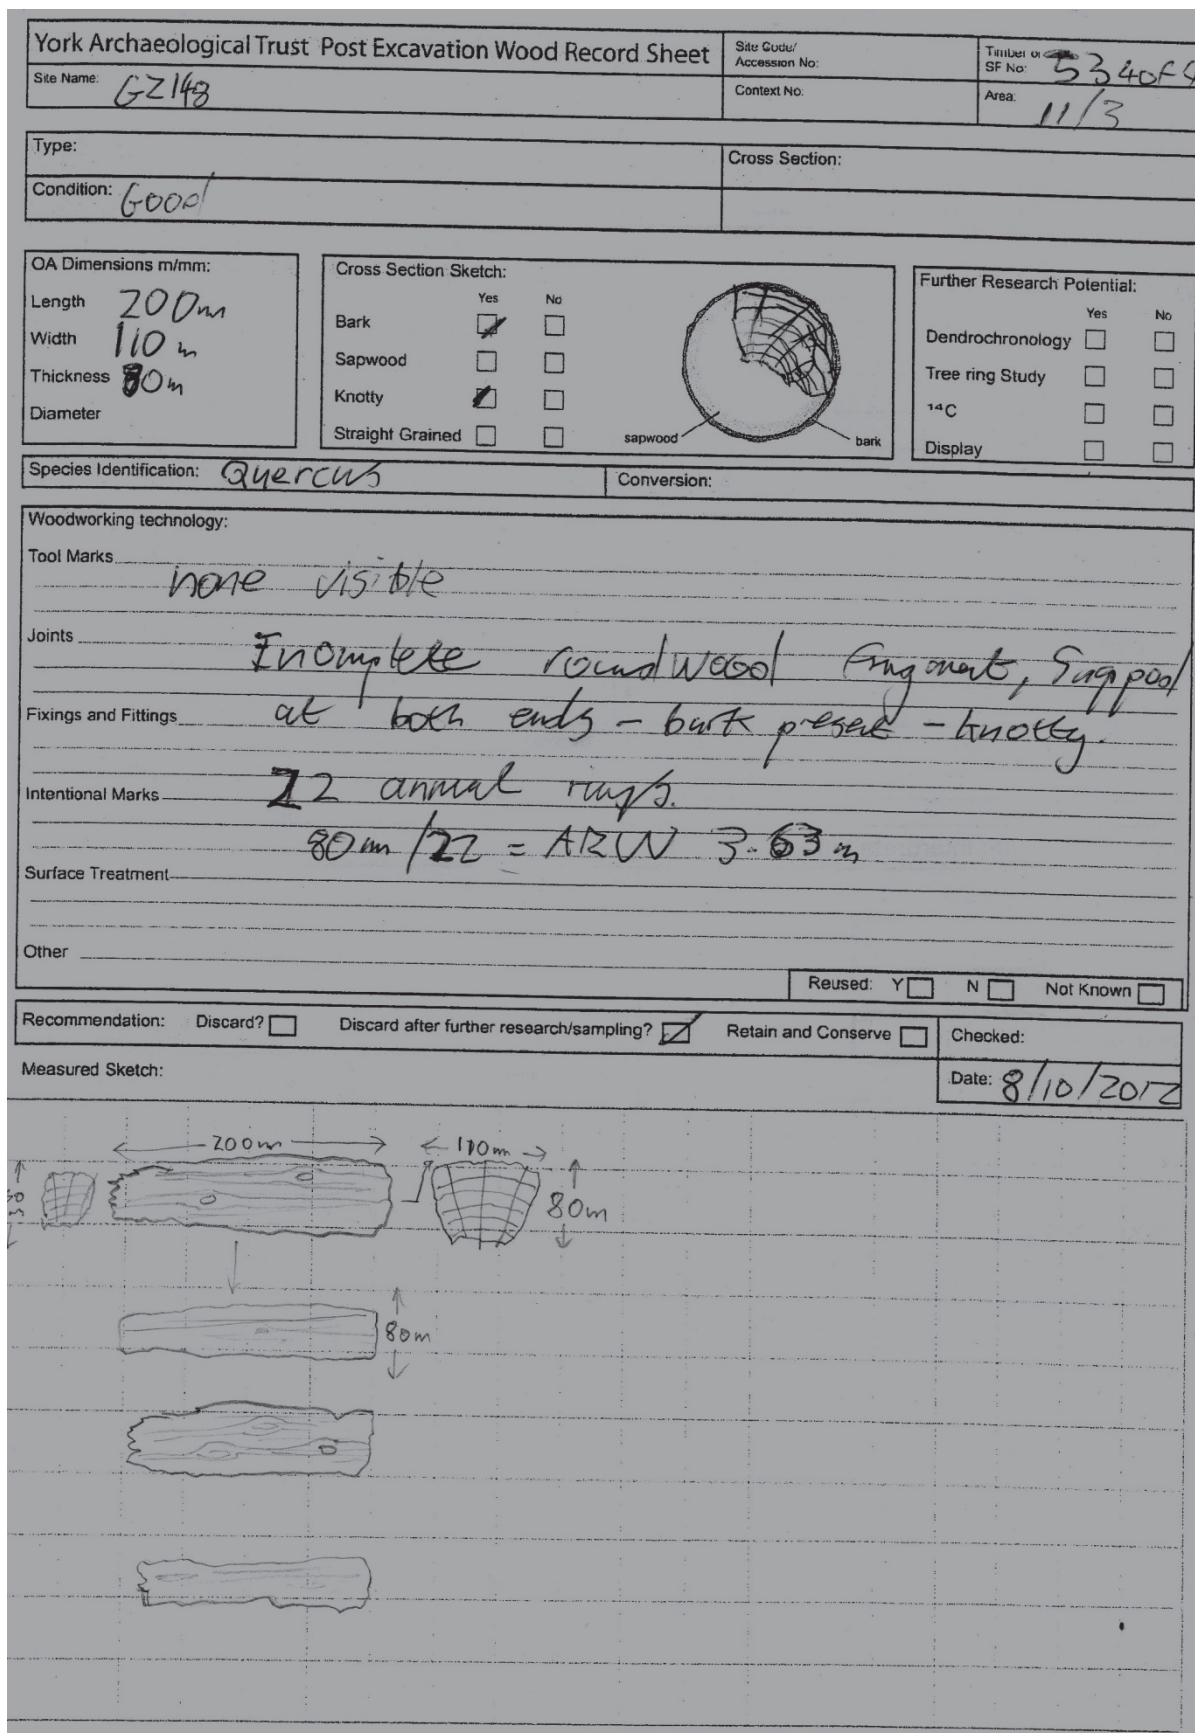 York Archaeological Trust Post Excavation Wood Record Sheet
Site Code/
Accession No:
Timber or
SF No: 53 4 of 4
Site Name: GZ148
Context No:
Area: 11/3
Type:
Cross Section:
Condition: Good
OA Dimensions m/mm:
Length 200m
Width 110m
Thickness 80m
Diameter
Cross Section Sketch:
Yes No
Bark
Sapwood
Knotty
Straight Grained
sapwood
bark
Further Research Potential:
Yes No
Dendrochronology
Tree ring Study
¹⁴C
Display
Species Identification: Quercus
Conversion:
Woodworking technology:
Tool Marks
none visible
Joints
Incomplete roundwood fragment, Snapped
Fixings and Fittings at both ends - bark present - knotty.
Intentional Marks 22 annual rings.
80mm/22 = ARW 3.63m
Surface Treatment
Other
Reused: Y N Not Known
Recommendation: Discard? Discard after further research/sampling? Retain and Conserve
Checked:
Measured Sketch:
Date: 8/10/2012
200m
110m
80m
80m